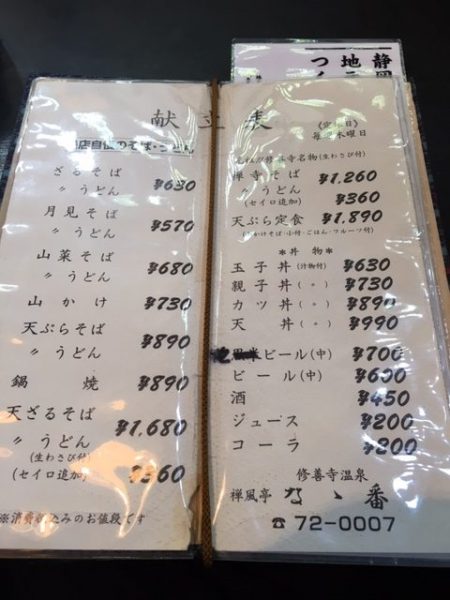 献立表
当店自慢のそば・うどん
ざるそば
〃うどん ¥630
月見そば
〃うどん ¥570
山菜そば
〃うどん ¥680
山かけ ¥730
天ぷらそば
〃うどん ¥890
鍋焼 ¥890
天ざるそば
〃うどん ¥1,680
(生わさび付)
(セイロ追加) ¥360
※消費税込みのお値段です
静岡
地
つ
《定休日》
毎週木曜日
修善寺名物(生わさび付)
禅寺そば ¥1,260
〃うどん
(セイロ追加) ¥360
天ぷら定食 ¥1,890
(かけそば・小付・ごはん・フルーツ付)
*丼物*
玉子丼(汁物付) ¥630
親子丼(〃) ¥730
カツ丼(〃) ¥890
天丼(〃) ¥990
ビール(中) ¥700
ビール(中) ¥600
酒 ¥450
ジュース ¥200
コーラ ¥200
修善寺温泉
禅風亭 なゝ番
☎72-0007